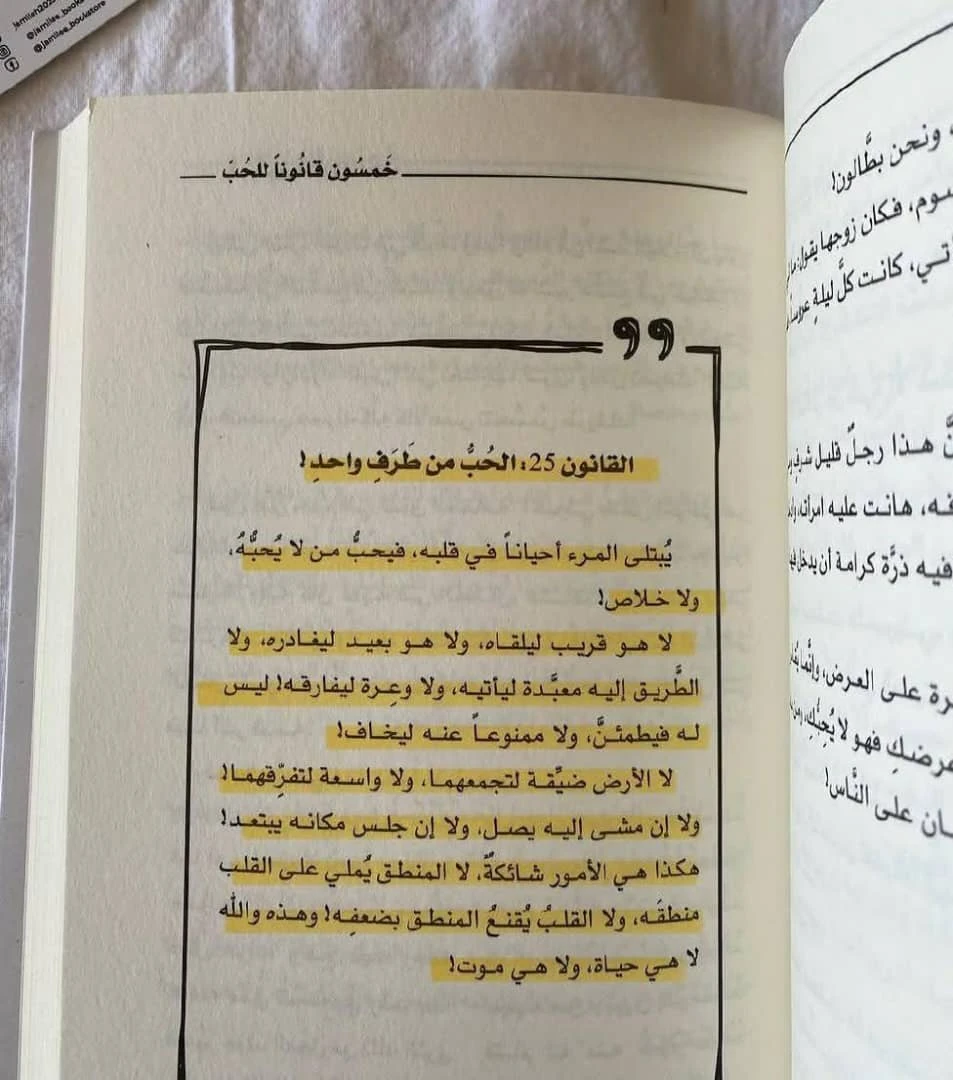 @jamilee_bookstore
خَمسُون قانُوناً للحُبّ
القانون 25: الحُبُّ من طَرَفِ واحدِ!
يُبتلى المرء أحياناً في قلبه، فيحبُّ من لا يُحبُّهُ،
ولا خلاص!
لا هو قريب ليلقاه، ولا هو بعيد ليغادره، ولا
الطَّريق إليه معبَّدة ليأتيه، ولا وعِرة ليفارقه! ليس
له فيطمئنَّ، ولا ممنوعاً عنه ليخاف!
لا الأرض ضيِّقة لتجمعهما، ولا واسعة لتفرِّقهما!
ولا إن مشى إليه يصل، ولا إن جلس مكانه يبتعد!
هكذا هي الأمور شائكةٌ، لا المنطق يُملي على القلب
منطقَه، ولا القلبُ يُقنعُ المنطق بضعفِه! وهذه والله
لا هي حياة، ولا هي موت!
، ونحن بطَّالون!
سوم، فكان زوجها يقول: ما
أتي، كانت كلَّ ليلةٍ
نَّ هذا رجلٌ قليل
فه، هانت عليه امرأته،
فيه ذرَّة كرامة أن يدخل
رة على العرض، وإنَّما
عرضكِ فهو لا يُحِبُّكِ، ومن
ان على النَّاس!